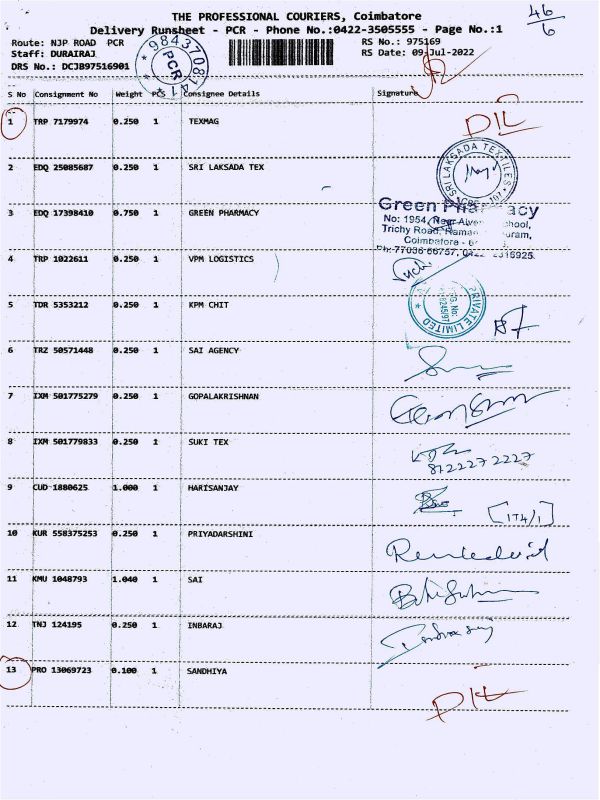 THE PROFESSIONAL COURIERS, Coimbatore
46
6
Delivery Runsheet - PCR - Phone No.:0422-3505555 - Page No.:1
Route: NJP ROAD PCR
RS No.: 975169
Staff: DURAIRAJ
RS Date: 09-Jul-2022
DRS No.: DCJB97516901
PCR
S No Consignment No Weight PCS Consignee Details Signature
1 TRP 7179974 0.250 1 TEXMAG
2 EDQ 25085687 0.250 1 SRI LAKSADA TEX
SRI LAKSADA TEXTILES
3 EDQ 17398410 0.750 1 GREEN PHARMACY
Green Pharmacy
No: 1954,
Trichy Road,
Coimbatore - 6
4 TRP 1022611 0.250 1 VPM LOGISTICS
5 TDR 5353212 0.250 1 KPM CHIT
PRIVATE LIMITED
6 TRZ 50571448 0.250 1 SAI AGENCY
7 IXM 501775279 0.250 1 GOPALAKRISHNAN
8 IXM 501779833 0.250 1 SUKI TEX
8122272227
9 CUD 1880625 1.000 1 HARISANJAY
10 KUR 558375253 0.250 1 PRIYADARSHINI
11 KMU 1048793 1.040 1 SAI
12 TNJ 124195 0.250 1 INBARAJ
13 PRO 13069723 0.100 1 SANDHIYA